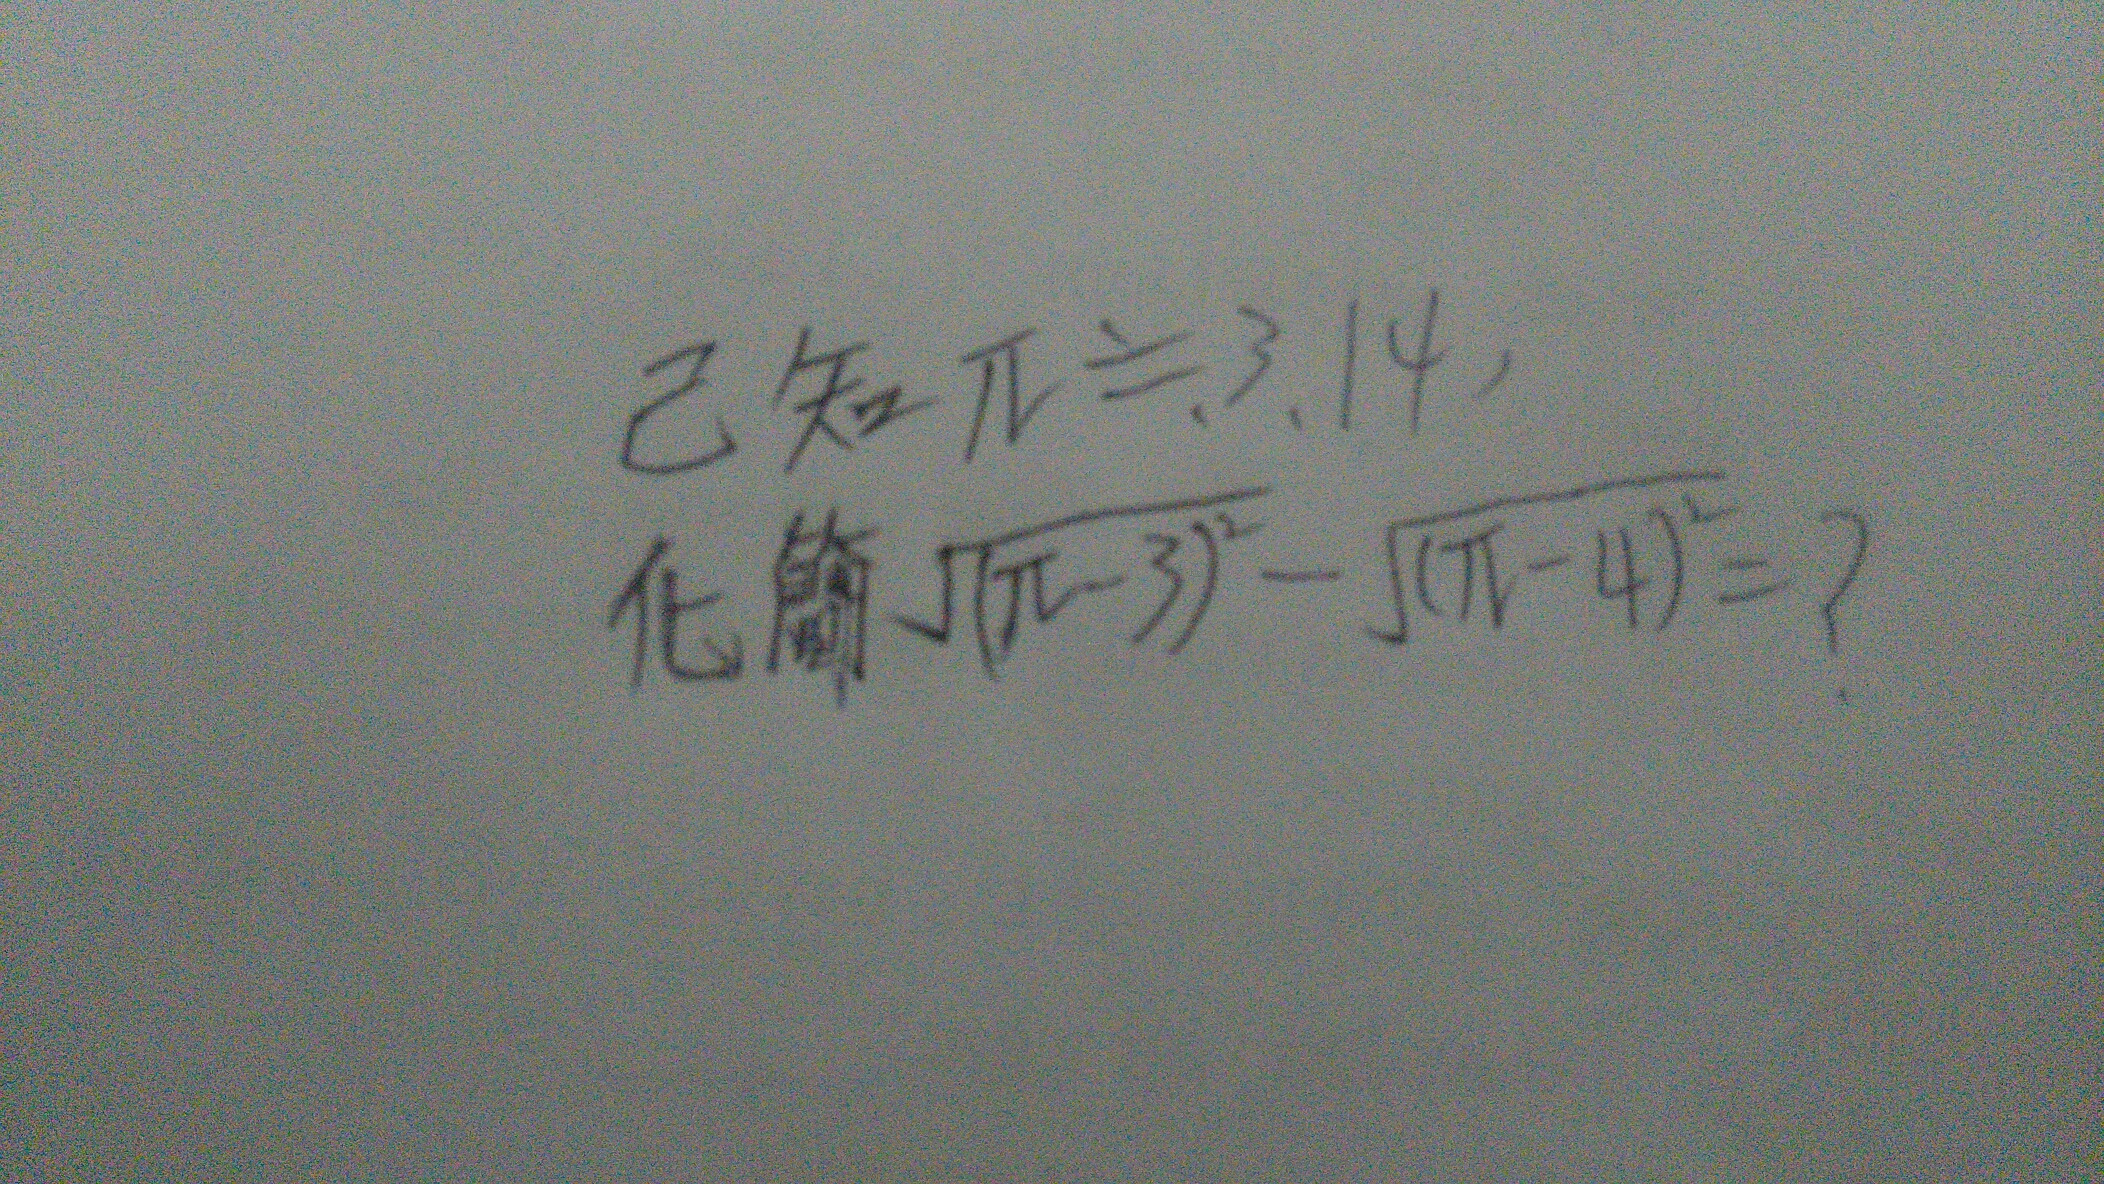 已知π≒3.14,
化簡√(π-3)² - √(π-4)² = ?